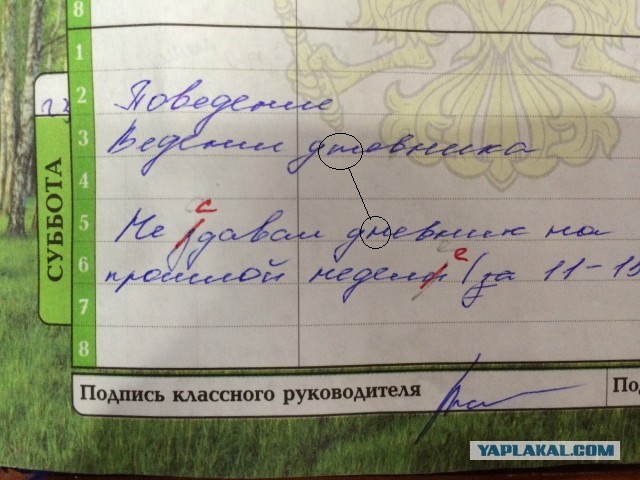 8
1
2 Поведение
3 Ведении дневника
4
5 Не здавал дневник на
с
6 прошлой недели (за 11-15
е
7
8
СУББОТА
Подпись классного руководителя
По
YAPLAKAL.COM